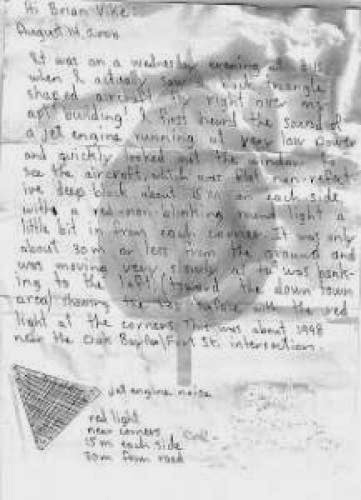 Hi Brian Vike:
August 14, 2006
It was on a wednesday evening at 8:15
when I actually saw a black triangle
shaped aircraft fly right over my
apt building! I first heard the sound of
a jet engine running at very low power
and quickly looked out the window to
see the aircraft, which was flat non-reflect
ive deep black about 15 m on each side
with a red non-blinking round light a
little bit in from each corner. It was only
about 30 m or less from the ground and
was moving very slowly as it was bank-
ing to the left (toward the down town
area) showing the surface with the red
light at the corners. This was about 1998
near the Oak Bay Fort St. intersection.
jet engine noise
red light
near corners
15 m each side
30m from road